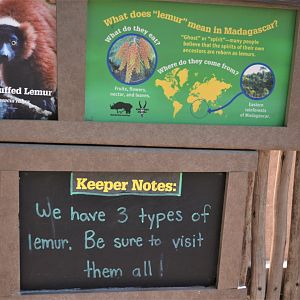 What does "lemur" mean in Madagascar?
"Ghost" or "spirit"—many people
believe that the spirits of their own
ancestors are reborn as lemurs.
What do they eat?
Fruits, flowers,
nectar, and leaves.
Where do they come from?
Eastern
rainforests
of Madagascar.
uffed Lemur
Keeper Notes:
We have 3 types of
lemur. Be sure to visit
them all!